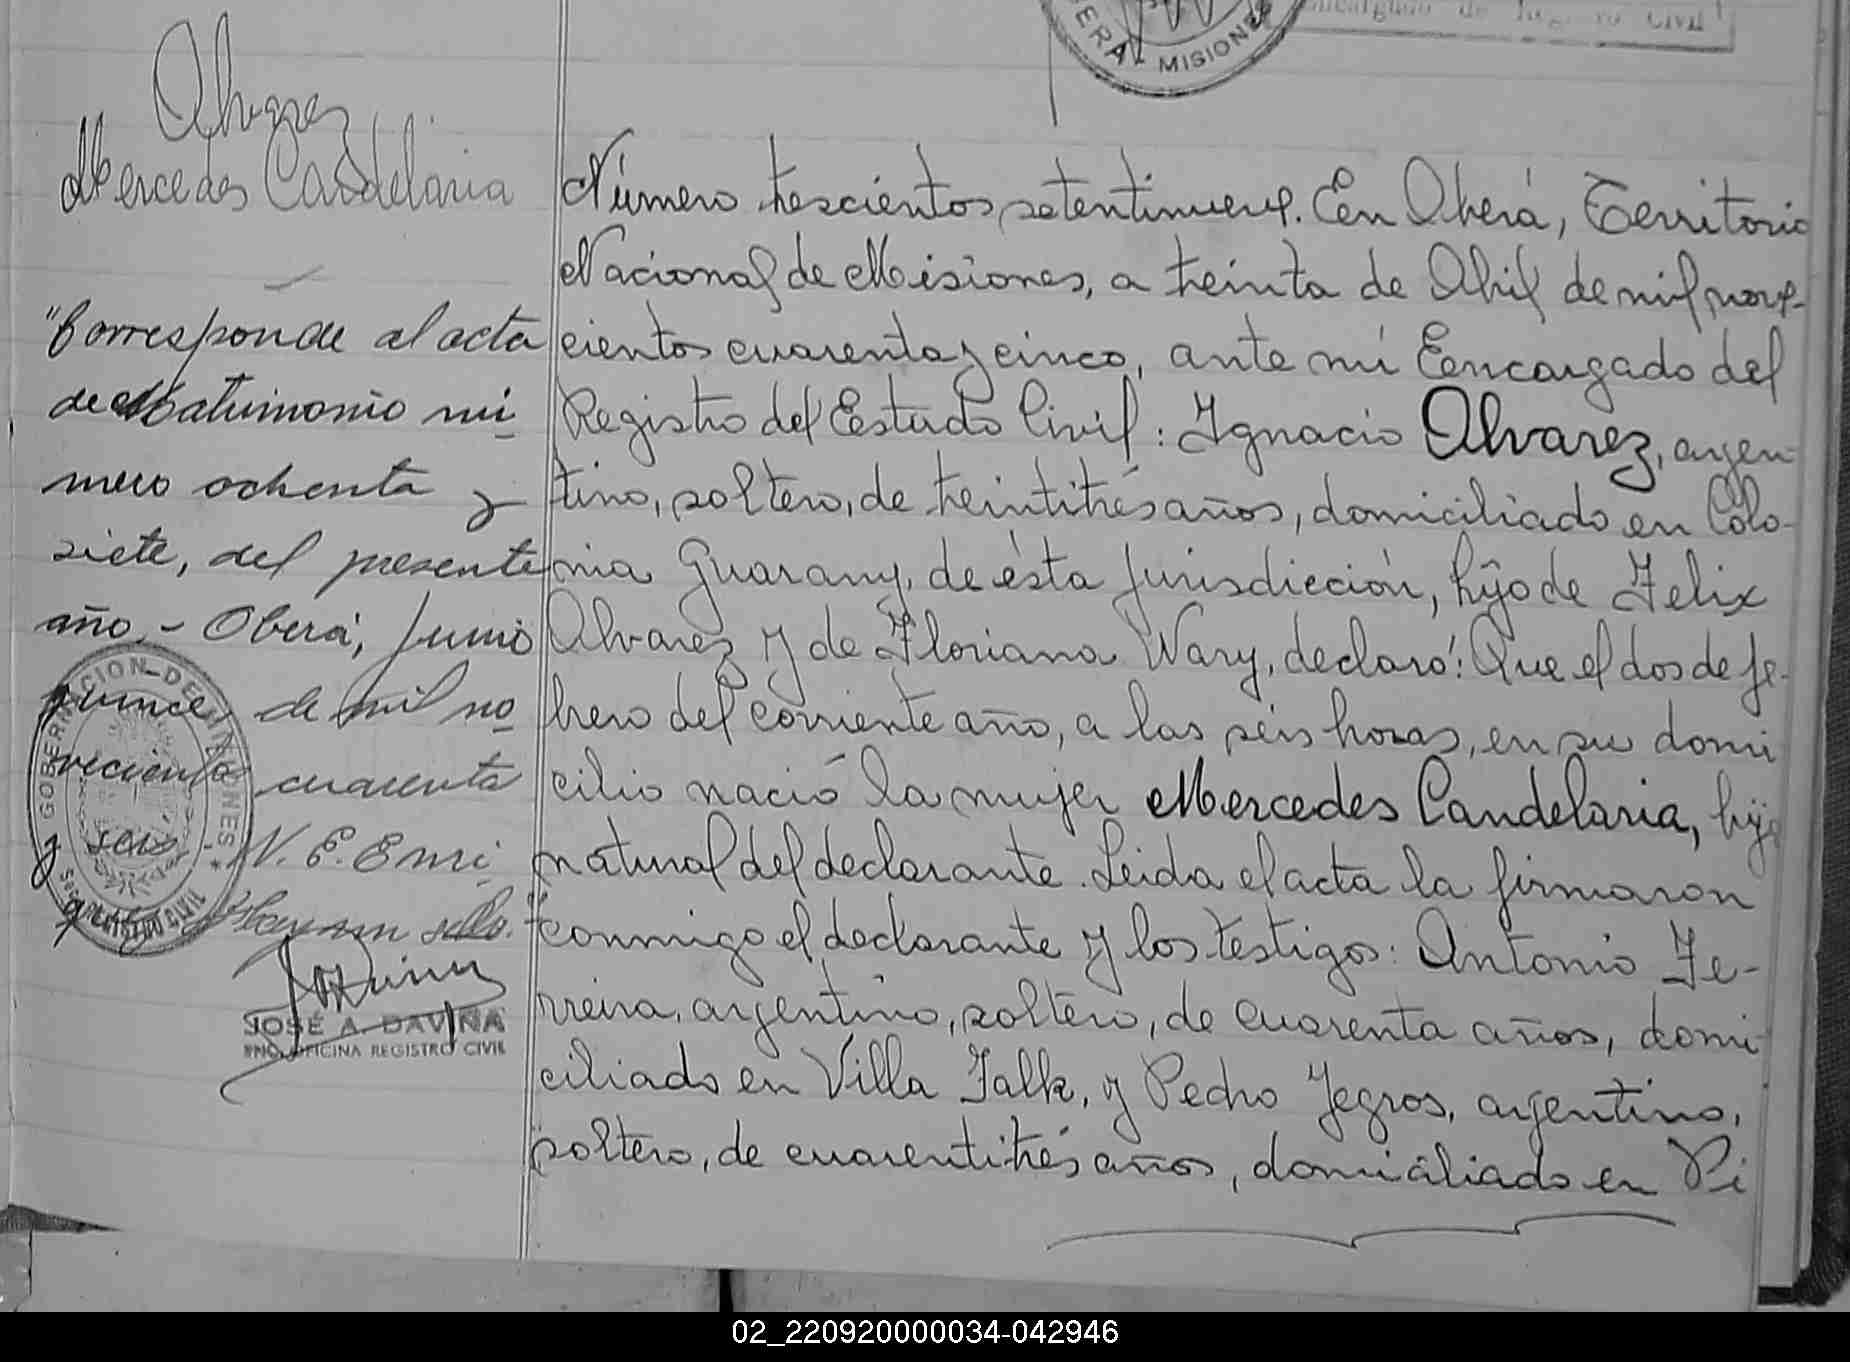 GENERAL MISIONES
Encargado de Registro Civil
Alvarez
Mercedes Candelaria
"Corresponde al acta
de Matrimonio nú-
mero ochenta y
siete, del presente
año.- Oberá, Junio
quince de mil no-
vecientos cuarenta
y seis. N. E. Enmi.
vale.
JOSÉ A. DAVIÑA
ENC. OFICINA REGISTRO CIVIL
GOBERNACION DE MISIONES
REGISTRO CIVIL
Número trescientos setentinueve. En Oberá, Territorio
Nacional de Misiones, a treinta de Abril de mil nove-
cientos cuarenta y cinco, ante mí Eencargado del
Registro del Estado Civil: Ignacio Alvarez, argen-
tino, soltero, de treintitrés años, domiciliado en Colo-
nia Guarany, de ésta jurisdicción, hijo de Felix
Alvarez y de Floriana Wary, declaró: Que el dos de fe-
brero del corriente año, a las séis horas, en su domi
cilio nació la mujer Mercedes Candelaria, hija
natural del declarante. Leida el acta la firmaron
conmigo el declarante y los testigos: Antonio Fe-
rreira, argentino, soltero, de cuarenta años, domi-
ciliado en Villa Falk, y Pedro Yegros, argentino,
soltero, de cuarentitrés años, domiciliado en Vi
02_220920000034-042946